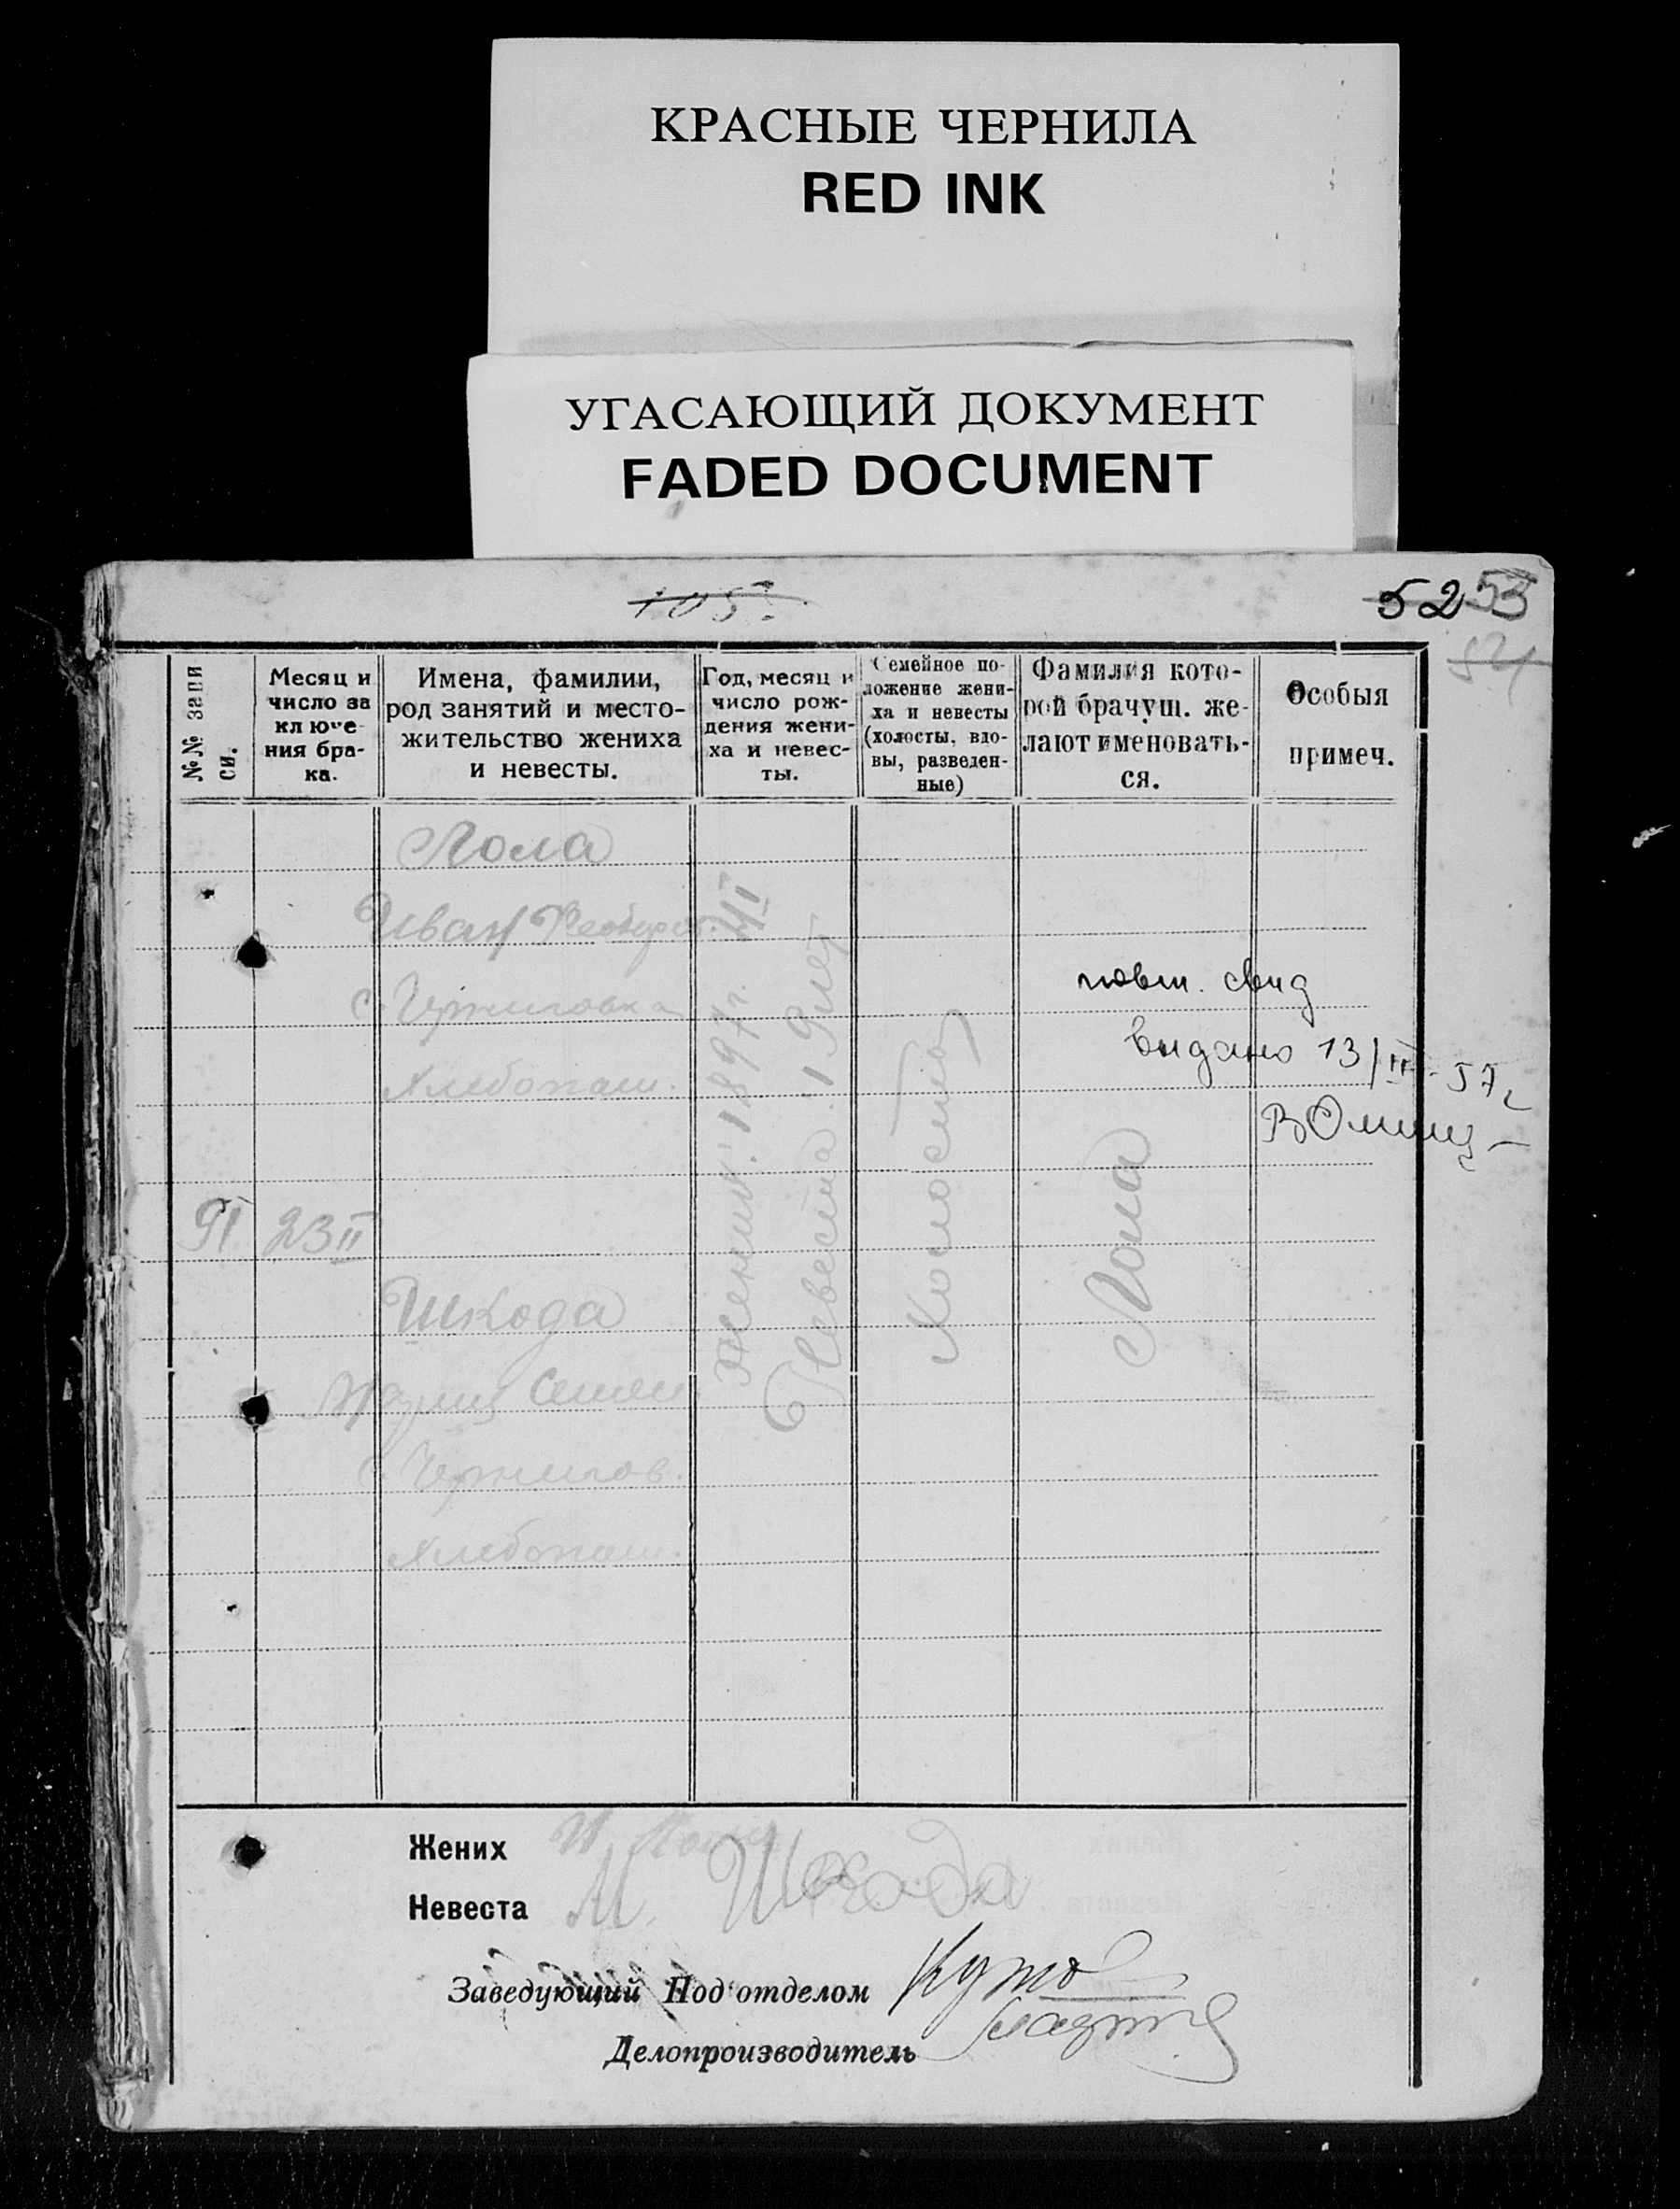 КРАСНЫЕ ЧЕРНИЛА
RED INK
УГАСАЮЩИЙ ДОКУМЕНТ
FADED DOCUMENT
105.
52 53
54
№№ запи
си.
Месяц и
число за
ключе-
ния бра-
ка.
Имена, фамилии,
род занятий и место-
жительство жениха
и невесты.
Год, месяц и
число рож-
дения жени-
ха и невес-
ты.
Семейное по-
ложение жени-
ха и невесты
(холосты, вдо-
вы, разведен-
ные)
Фамилия кото-
рой брачущ. же-
лают именовать-
ся.
Особыя
примеч.
91
23 II
Лола
Иван
с. Черниговка
Хлебопаш.
Шкода
Мария Семен.
с. Чернигов.
Хлебопаш.
Жених. 1897 г.
Невеста. 19 лет
Холосты
Лола
повт. свид
видано 13/ 57 г
Жених И. Лола
Невеста М. Шкода
Заведующий Подотделом
Делопроизводитель